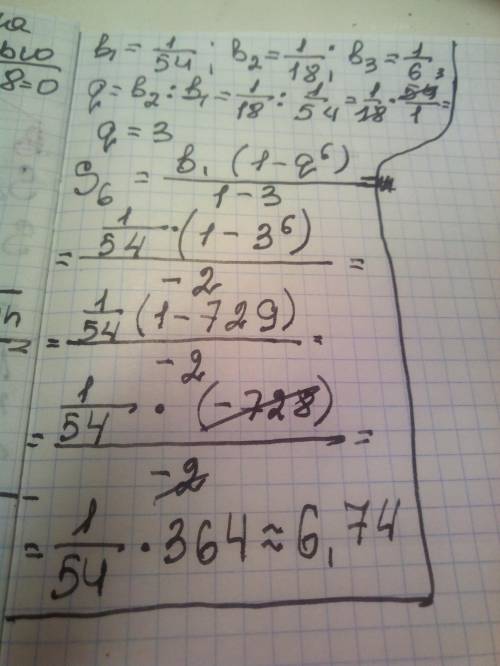 в₁ = 1/54; в₂ = 1/18; в₃ = 1/6;
q = в₂ : в₁ = 1/18 : 1/54 = 1/18 · 54/1 =
q = 3
S₆ = в₁ (1 - q⁶) / 1 - 3 =
= 1/54 · (1 - 3⁶) / -2 =
= 1/54 (1 - 729) / -2 =
= 1/54 · (-728) / -2 =
= 1/54 · 364 ≈ 6,74
8=0